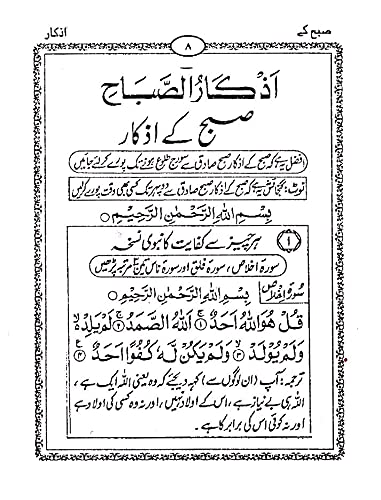 صبح کے
اذکار
۸
اَذْكَارُ الصَّبَاحِ
صبح کے اذکار
افضل یہ ہے کہ صبح کے اذکار صبح صادق سے سورج طلوع ہونے تک پورے کر لئے جائیں
نوٹ: گنجائش یہ ہے کہ صبح کے اذکار صبح صادق سے دوپہر تک کسی بھی وقت پورے کر لیں
بِسْمِ اللهِ الرَّحْمٰنِ الرَّحِيْمِ
۱ ہر چیز سے کفایت کا نبوی نسخہ
سورۂ اخلاص، سورۂ فلق اور سورۂ ناس تین مرتبہ پڑھیں
سورۂ اخلاص بِسْمِ اللهِ الرَّحْمٰنِ الرَّحِيْمِ
قُلْ هُوَ اللهُ اَحَدٌ ۚ﴿۱﴾ اَللهُ الصَّمَدُ ۚ﴿۲﴾ لَمْ يَلِدْ ۙ
وَلَمْ يُوْلَدْ ۙ﴿۳﴾ وَلَمْ يَكُنْ لَّهٗ كُفُوًا اَحَدٌ ﴿۴﴾
ترجمہ: آپ (ان لوگوں سے) کہہ دیجئے کہ وہ یعنی اللہ ایک ہے،
اللہ ہی بے نیاز ہے، اس کے اولاد نہیں، اور نہ وہ کسی کی اولاد ہے
اور نہ کوئی اس کی برابر کا ہے۔